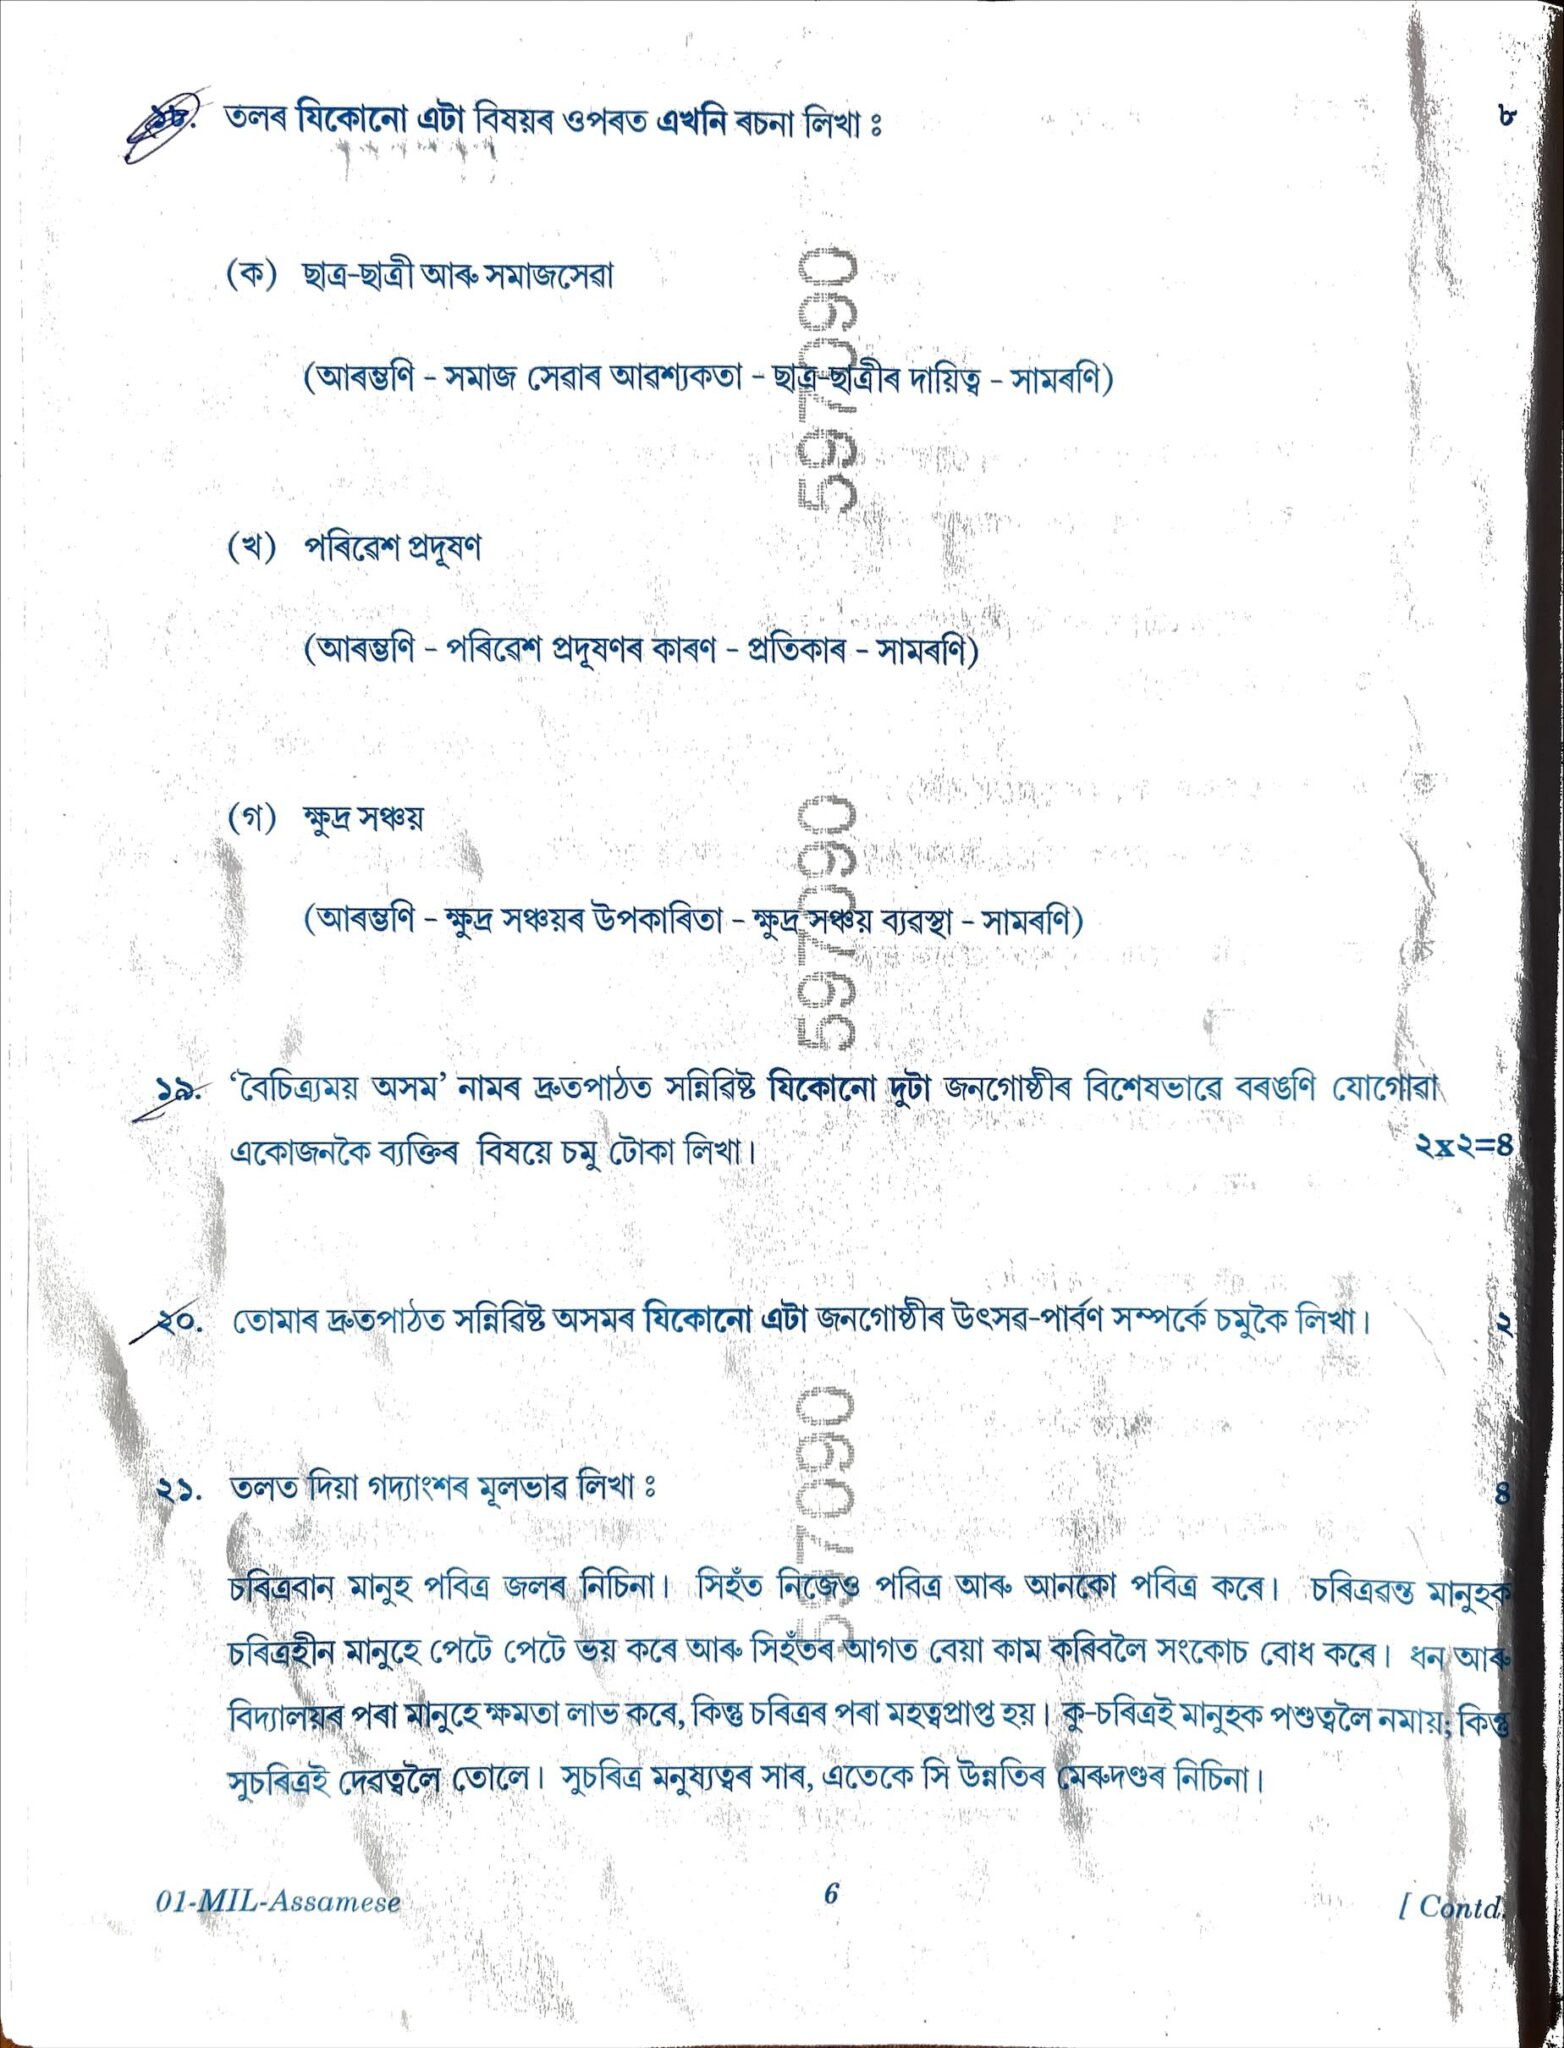 ১৮. তলৰ যিকোনো এটা বিষয়ৰ ওপৰত এখনি ৰচনা লিখা ঃ ৮
(ক) ছাত্ৰ-ছাত্ৰী আৰু সমাজসেৱা
(আৰম্ভণি - সমাজ সেৱাৰ আৱশ্যকতা - ছাত্ৰ-ছাত্ৰীৰ দায়িত্ব - সামৰণি)
(খ) পৰিৱেশ প্ৰদূষণ
(আৰম্ভণি - পৰিৱেশ প্ৰদূষণৰ কাৰণ - প্ৰতিকাৰ - সামৰণি)
(গ) ক্ষুদ্ৰ সঞ্চয়
(আৰম্ভণি - ক্ষুদ্ৰ সঞ্চয়ৰ উপকাৰিতা - ক্ষুদ্ৰ সঞ্চয় ব্যৱস্থা - সামৰণি)
১৯. ‘বৈচিত্ৰ্যময় অসম’ নামৰ দ্ৰুতপাঠত সন্নিৱিষ্ট যিকোনো দুটা জনগোষ্ঠীৰ বিশেষভাৱে বৰঙণি যোগোৱা
একোজনকৈ ব্যক্তিৰ বিষয়ে চমু টোকা লিখা। ২x২=৪
২০. তোমাৰ দ্ৰুতপাঠত সন্নিৱিষ্ট অসমৰ যিকোনো এটা জনগোষ্ঠীৰ উৎসৱ-পাৰ্বণ সম্পৰ্কে চমুকৈ লিখা। ২
২১. তলত দিয়া গদ্যাংশৰ মূলভাৱ লিখা ঃ ৪
চৰিত্ৰবান মানুহ পবিত্ৰ জলৰ নিচিনা। সিহঁত নিজেও পবিত্ৰ আৰু আনকো পবিত্ৰ কৰে। চৰিত্ৰৱন্ত মানুহক
চৰিত্ৰহীন মানুহে পেটে পেটে ভয় কৰে আৰু সিহঁতৰ আগত বেয়া কাম কৰিবলৈ সংকোচ বোধ কৰে। ধন আৰু
বিদ্যালয়ৰ পৰা মানুহে ক্ষমতা লাভ কৰে, কিন্তু চৰিত্ৰৰ পৰা মহত্বপ্ৰাপ্ত হয়। কু-চৰিত্ৰই মানুহক পশুত্বলৈ নমায়; কিন্তু
সুচৰিত্ৰই দেৱত্বলৈ তোলে। সুচৰিত্ৰ মনুষ্যত্বৰ সাৰ, এতেকে সি উন্নতিৰ মেৰুদণ্ডৰ নিচিনা।
01-MIL-Assamese 6 [ Contd.
5977090
5977090
5977090